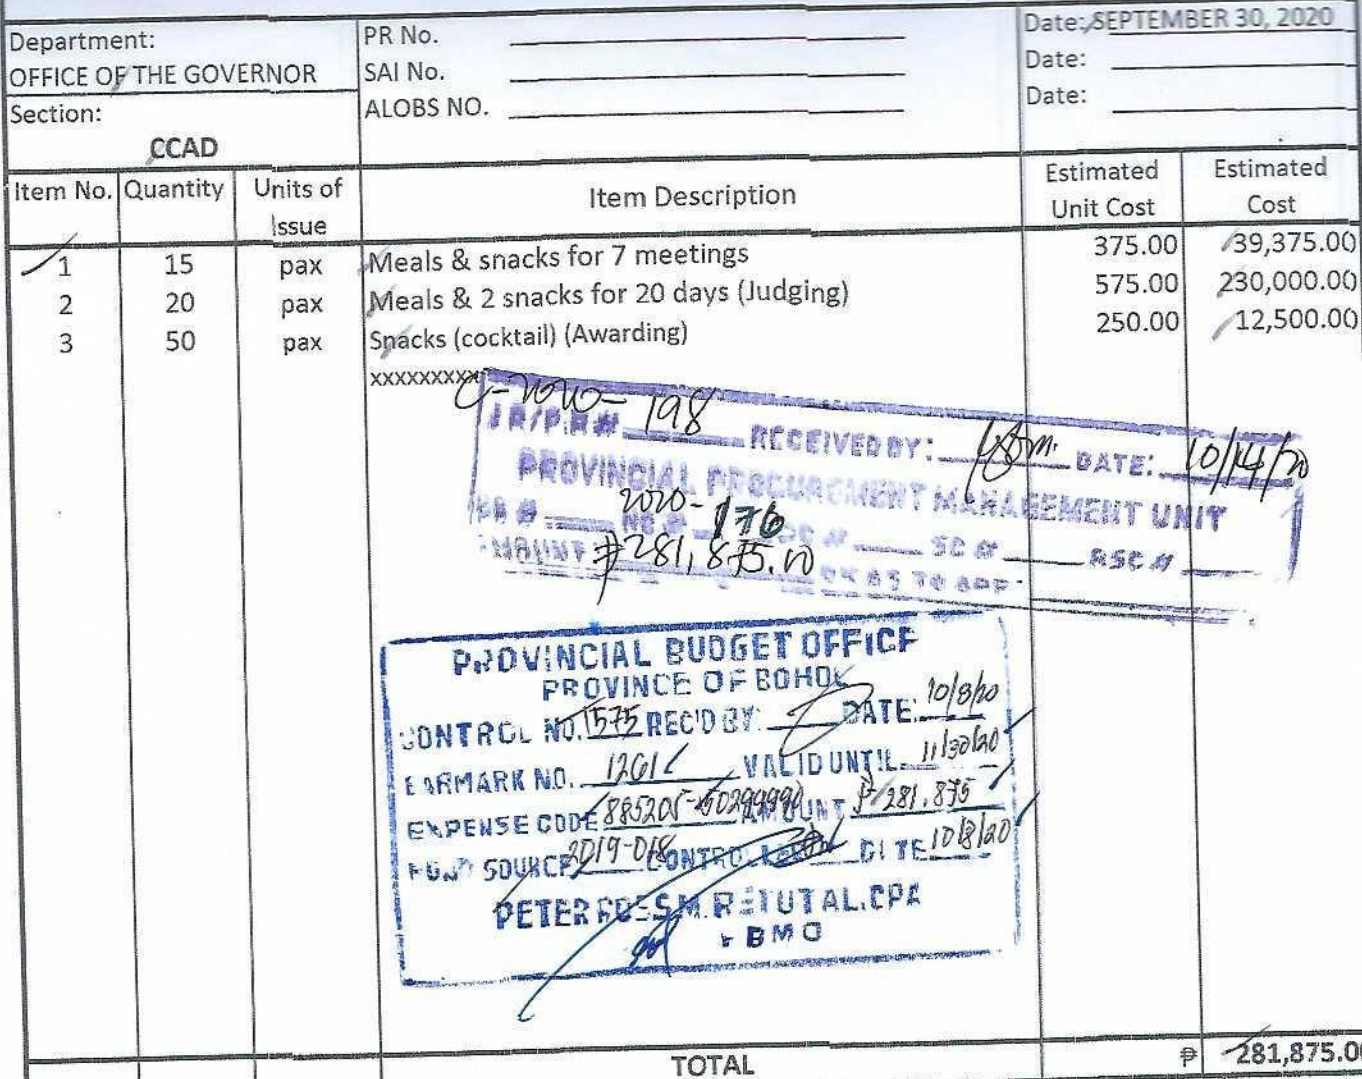 Department:
OFFICE OF THE GOVERNOR
Section:
CCAD
PR No.
SAI No.
ALOBS NO.
Date: SEPTEMBER 30, 2020
Date:
Date:
Item No. Quantity Units of Issue Item Description Estimated Unit Cost Estimated Cost
1 15 pax Meals & snacks for 7 meetings 375.00 39,375.00
2 20 pax Meals & 2 snacks for 20 days (Judging) 575.00 230,000.00
3 50 pax Snacks (cocktail) (Awarding) 250.00 12,500.00
xxxxxxxxx
198
RECEIVED BY: DATE: 10/14/20
PROVINCIAL PROCUREMENT MANAGEMENT UNIT
2020-176
SC # RSC #
AMOUNT ₱281,875.00
AS TO APP
PROVINCIAL BUDGET OFFICE
PROVINCE OF BOHOL
CONTROL NO. 1575 REC'D BY: DATE: 10/8/20
EARMARK NO. VALID UNTIL 11/30/20
EXPENSE CODE AMOUNT ₱281,875
FUND SOURCE 2019-018 DATE 10/8/20
PETER ROSS M. RETUTAL, CPA
TOTAL ₱ 281,875.0